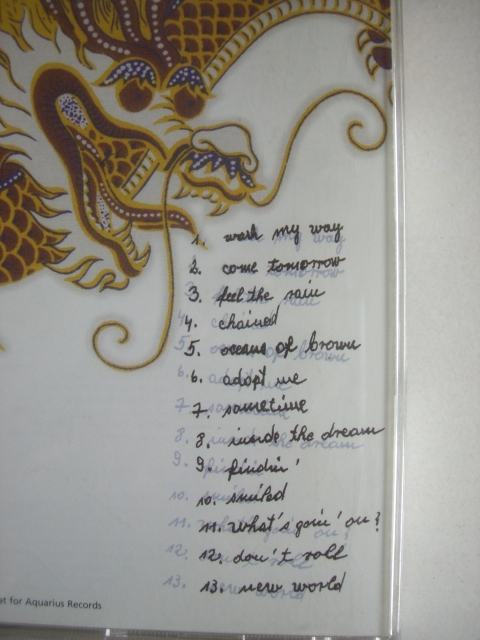 1. wash my way
2. come tomorrow
3. feel the rain
4. chained
5. oceans of brown
6. adopt me
7. sometime
8. inside the dream
9. findin'
10. smiled
11. what's goin' on?
12. don't roll
13. new world
et for Aquarius Records